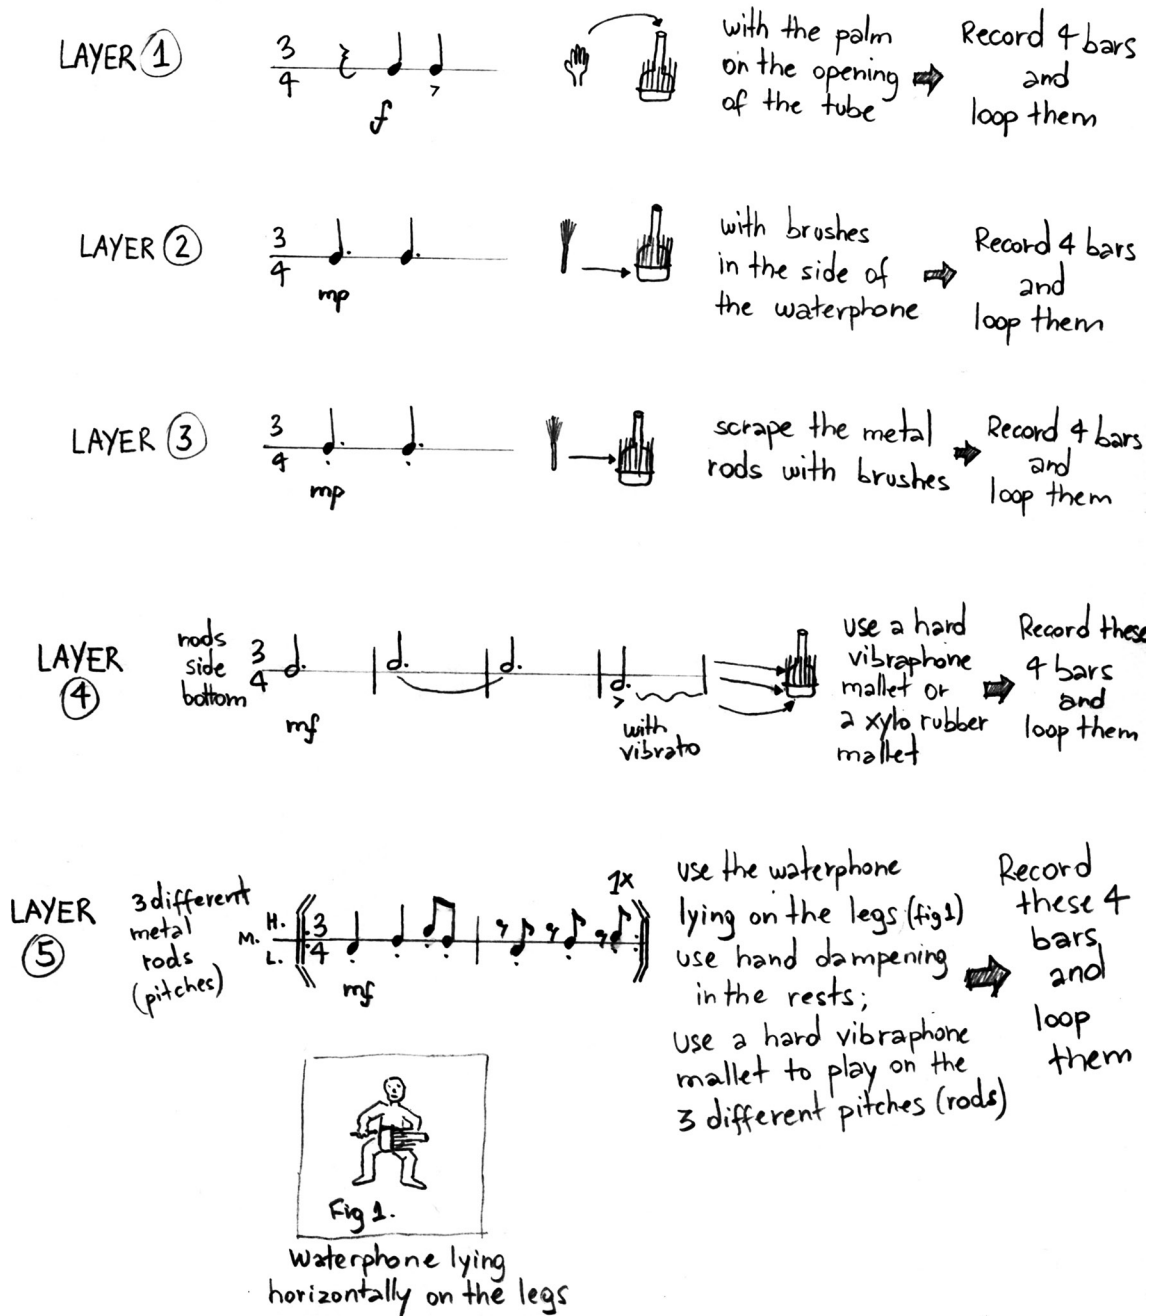 LAYER 1
3
4
f
with the palm
on the opening
of the tube
Record 4 bars
and
loop them
LAYER 2
3
4
mp
with brushes
in the side of
the waterphone
Record 4 bars
and
loop them
LAYER 3
3
4
mp
scrape the metal
rods with brushes
Record 4 bars
and
loop them
LAYER
4
rods
side
bottom
3
4
mf
with
vibrato
use a hard
vibraphone
mallet or
a xylo rubber
mallet
Record these
4 bars
and
loop them
LAYER
5
3 different
metal
rods
(pitches)
H.
M.
L.
3
4
mf
1x
use the waterphone
lying on the legs (fig1)
use hand dampening
in the rests;
use a hard vibraphone
mallet to play on the
3 different pitches (rods)
Record
these 4
bars
and
loop
them
Fig 1.
Waterphone lying
horizontally on the legs